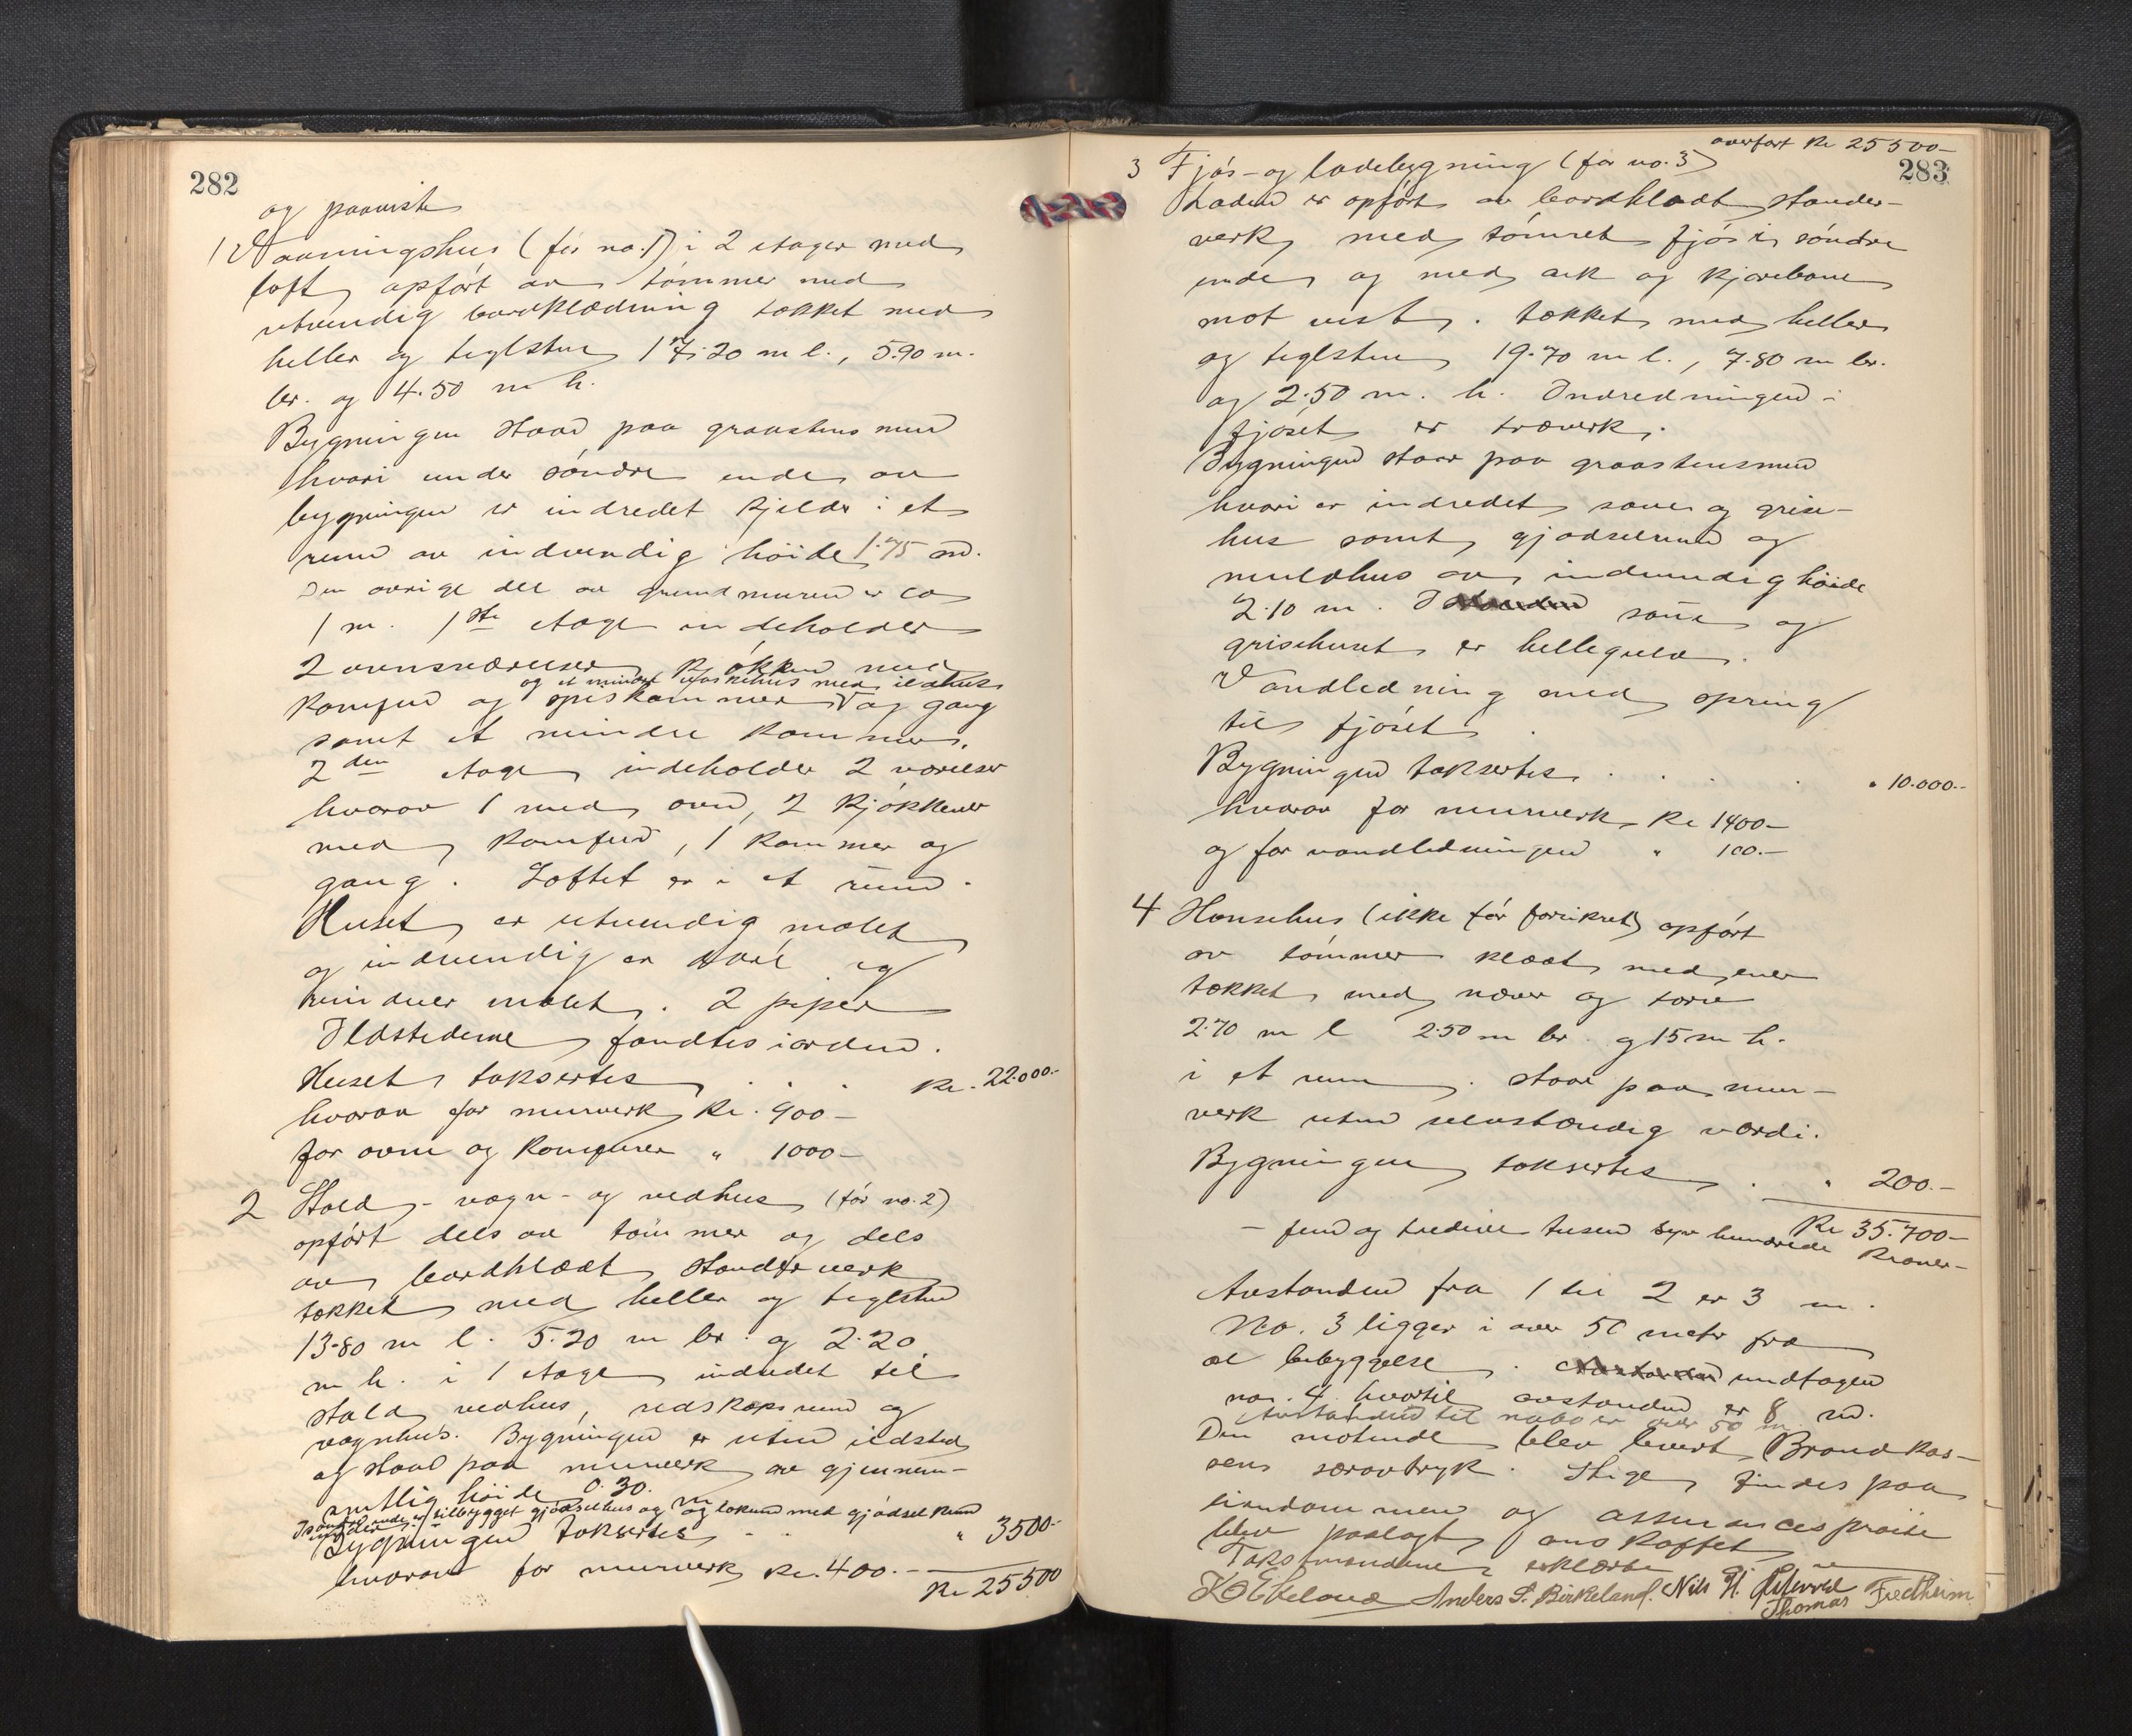 282
og paaviste
1 Vaaningshus (før no. 1) i 2 etager med
loft, opført av tømmer med
utvendig bordklædning tækket med
heller og teglsten 17.20 m l., 5.90 m.
br. og 4.50 m h.
Bygningen staar paa graastensmur
hvori under søndre ende av
bygningen er indredet kjelder i et
rum av indvendig høide 1.75 m.
Den øvrige del av grundmuren er ca
1 m. 1ste etage indeholder
2 ovnsværelser, kjøkken med
og et mindre vaskehus med ildhus
komfur og spiskammer og gang
samt et mindre kammer.
2den etage indeholder 2 værelser
hvorav 1 med ovn, 2 kjøkkener
med komfur, 1 kammer og
gang. Loftet er i et rum.
Huset er utvendig malet
og indvendig er
vinduer malet. 2 piper
Ildstederne fandtes iorden.
Huset taksertes . . . Kr. 22.000.-
hvorav for murverk Kr. 900-
for ovne og komfurer " 1000-
2 Stald-, vogn- og vedhus (før no. 2)
opført dels av tømmer og dels
av bordklædt standerverk
tækket med heller og teglsten
13.80 m l. 5.20 m br. og 2.20
m h. i 1 etage indredet til
stald, vedhus, redskapsrum og
vognhus. Bygningen er uten ildsted
og staar paa murverk av gjennem-
snitlig høide 0.30. m
I søndre ende er tilbygget gjødselhus og lokum med gjødselkum
under
Bygningen taksertes . . . " 3500.-
hvorav for murverk Kr. 400.-
Kr 25500
283
overført Kr 25500-
3 Fjøs- og ladebygning (før no. 3)
Laden er opført av bordklædt stander-
verk, med tømret fjøs i søndre
ende og med ark og kjørebane
mot vest. Tækket med heller
og teglsten 19.70 m l., 7.80 m br.
og 2.50 m. h. Indredningen i
fjøset er træverk.
Bygningen staar paa graastensmur
hvori er indredet saue- og grise-
hus samt gjødselrum og
muldhus av indvendig høide
2.10 m. I saue og
grisehuset er hellegulv.
Vandledning med spring
til fjøset.
Bygningen taksertes . . . . " 10.000.-
hvorav for murverk Kr 1400-
og for vandledningen " 100.-
4 Hønsehus (ikke før forsikret) opført
av tømmer klædt med ener
tækket med næver og torv
2.70 m l 2.50 m br. og 15 m h.
i et rum. Staar paa mur-
verk uten selvstændig værdi.
Bygningen taksertes . . " 200.-
Kr 35.700-
- fem og tredive tusen syv hundrede Kroner-
Avstanden fra 1 til 2 er 3 m.
No. 3 ligger i over 50 meter fra
al bebyggelse. undtagen
no. 4 hvortil avstanden er 8 m.
Avstanden til nabo er over 50 m.
Den møtende blev levert Brandkas-
sens særavtryk. Stige findes paa
eiendommen og assurancesprøite
blev paalagt anskaffet.
Taksmændene erklærte
K O Ekeland Anders S. Birkeland. Nils H.
Thomas Fredheim